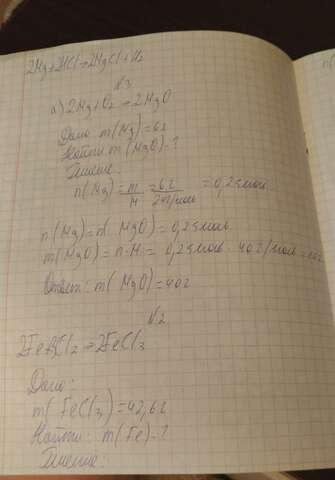 2Mg+2HCl→2MgCl+H2
№3
а) 2Mg+O2→2MgO
Дано: m(Mg)=6г
Найти: m(MgO)=?
Решение:
n(Mg)=m/M=6г/24г/моль=0,25моль
n(Mg)=n(MgO)=0,25моль
m(MgO)=n·M=0,25моль·40г/моль=
Ответ: m(MgO)=40г
№2
2Fe+3Cl2→2FeCl3
Дано:
m(FeCl3)=42,6г
Найти: m(Fe)=?
Решение: